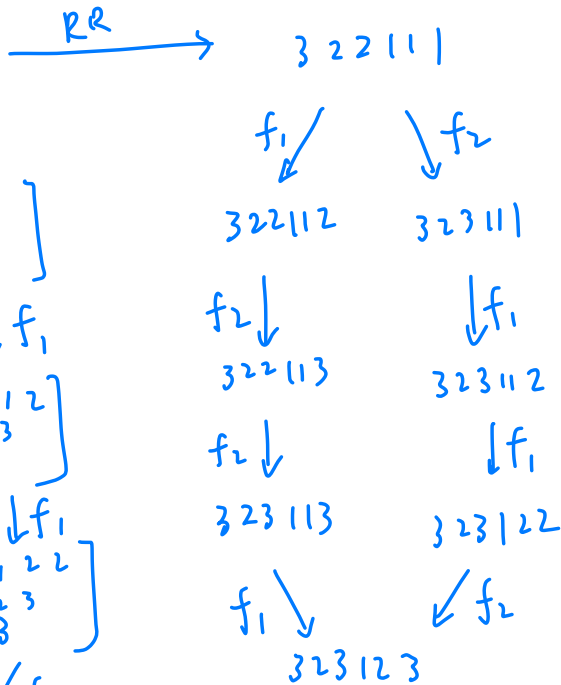 RR
3 2 2 1 1 1
f₁ f₂
3 2 2 1 1 2 3 2 3 1 1 1
f₁ f₂ f₁
3 2 2 1 1 3 3 2 3 1 1 2
1 2
3
f₂ f₁
3 2 3 1 1 3 3 2 3 1 2 2
f₁
2 2
2 3
3
f₁ f₂
3 2 3 1 2 3